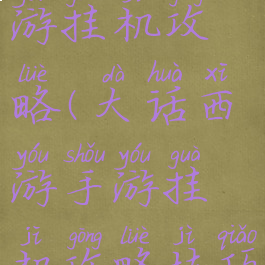 游挂机攻
lüè dà huà xī
略(大话西
yóu shǒu yóu guà
游手游挂
jī gōng lüè jì qiǎo
机攻略技巧